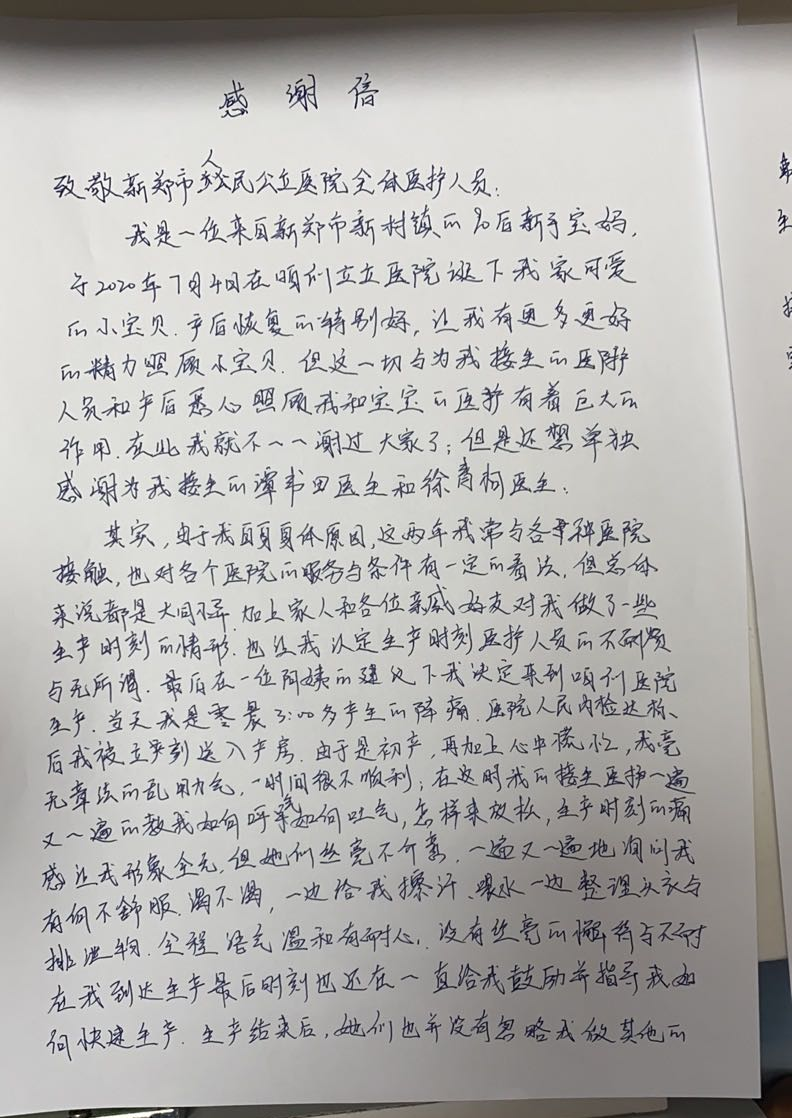 感谢信
致敬新郑市人民公立医院全体医护人员:
我是一位来自新郑市新村镇的90后新手宝妈,
于2020年7月4日在咱们公立医院诞下我家可爱
的小宝贝.产后恢复的特别好,让我有更多更好
的精力照顾小宝贝.但这一切与为我接生的医护
人员和产后悉心照顾我和宝宝的医护有着巨大的
作用.在此我就不一一谢过大家了;但是还想单独
感谢为我接生的谭书田医生和徐青柯医生:
其实,由于我自身身体原因,这两年我常与各种医院
接触,也对各个医院的服务与条件有一定的看法,但总体
来说都是大同小异.加上家人和各位亲戚好友对我做了一些
生产时刻的情形.也让我认定生产时刻医护人员的不耐烦
与无所谓.最后在一位阿姨的建议下我决定来到咱们医院
生产.当天我是零晨3:00多产生的阵痛.医院人民内检达标、
后我被立刻送入产房.由于是初产,再加上心中慌忙,我毫
无章法的乱用力气,一时间很不顺利;在这时我的接生医护一遍
又一遍的教我如何呼气如何吐气,怎样来放松,生产时刻的痛
感让我形象全无.但她们丝毫不介意,一遍又一遍地询问我
有何不舒服.渴不渴,一边给我擦汗、喂水一边整理头衣与
排泄物.全程语气温和有耐心,没有丝毫的懈怠与不耐
在我到达生产最后时刻也还在一直给我鼓励并指导我如
何快速生产.生产结束后,她们也并没有忽略我做其他的